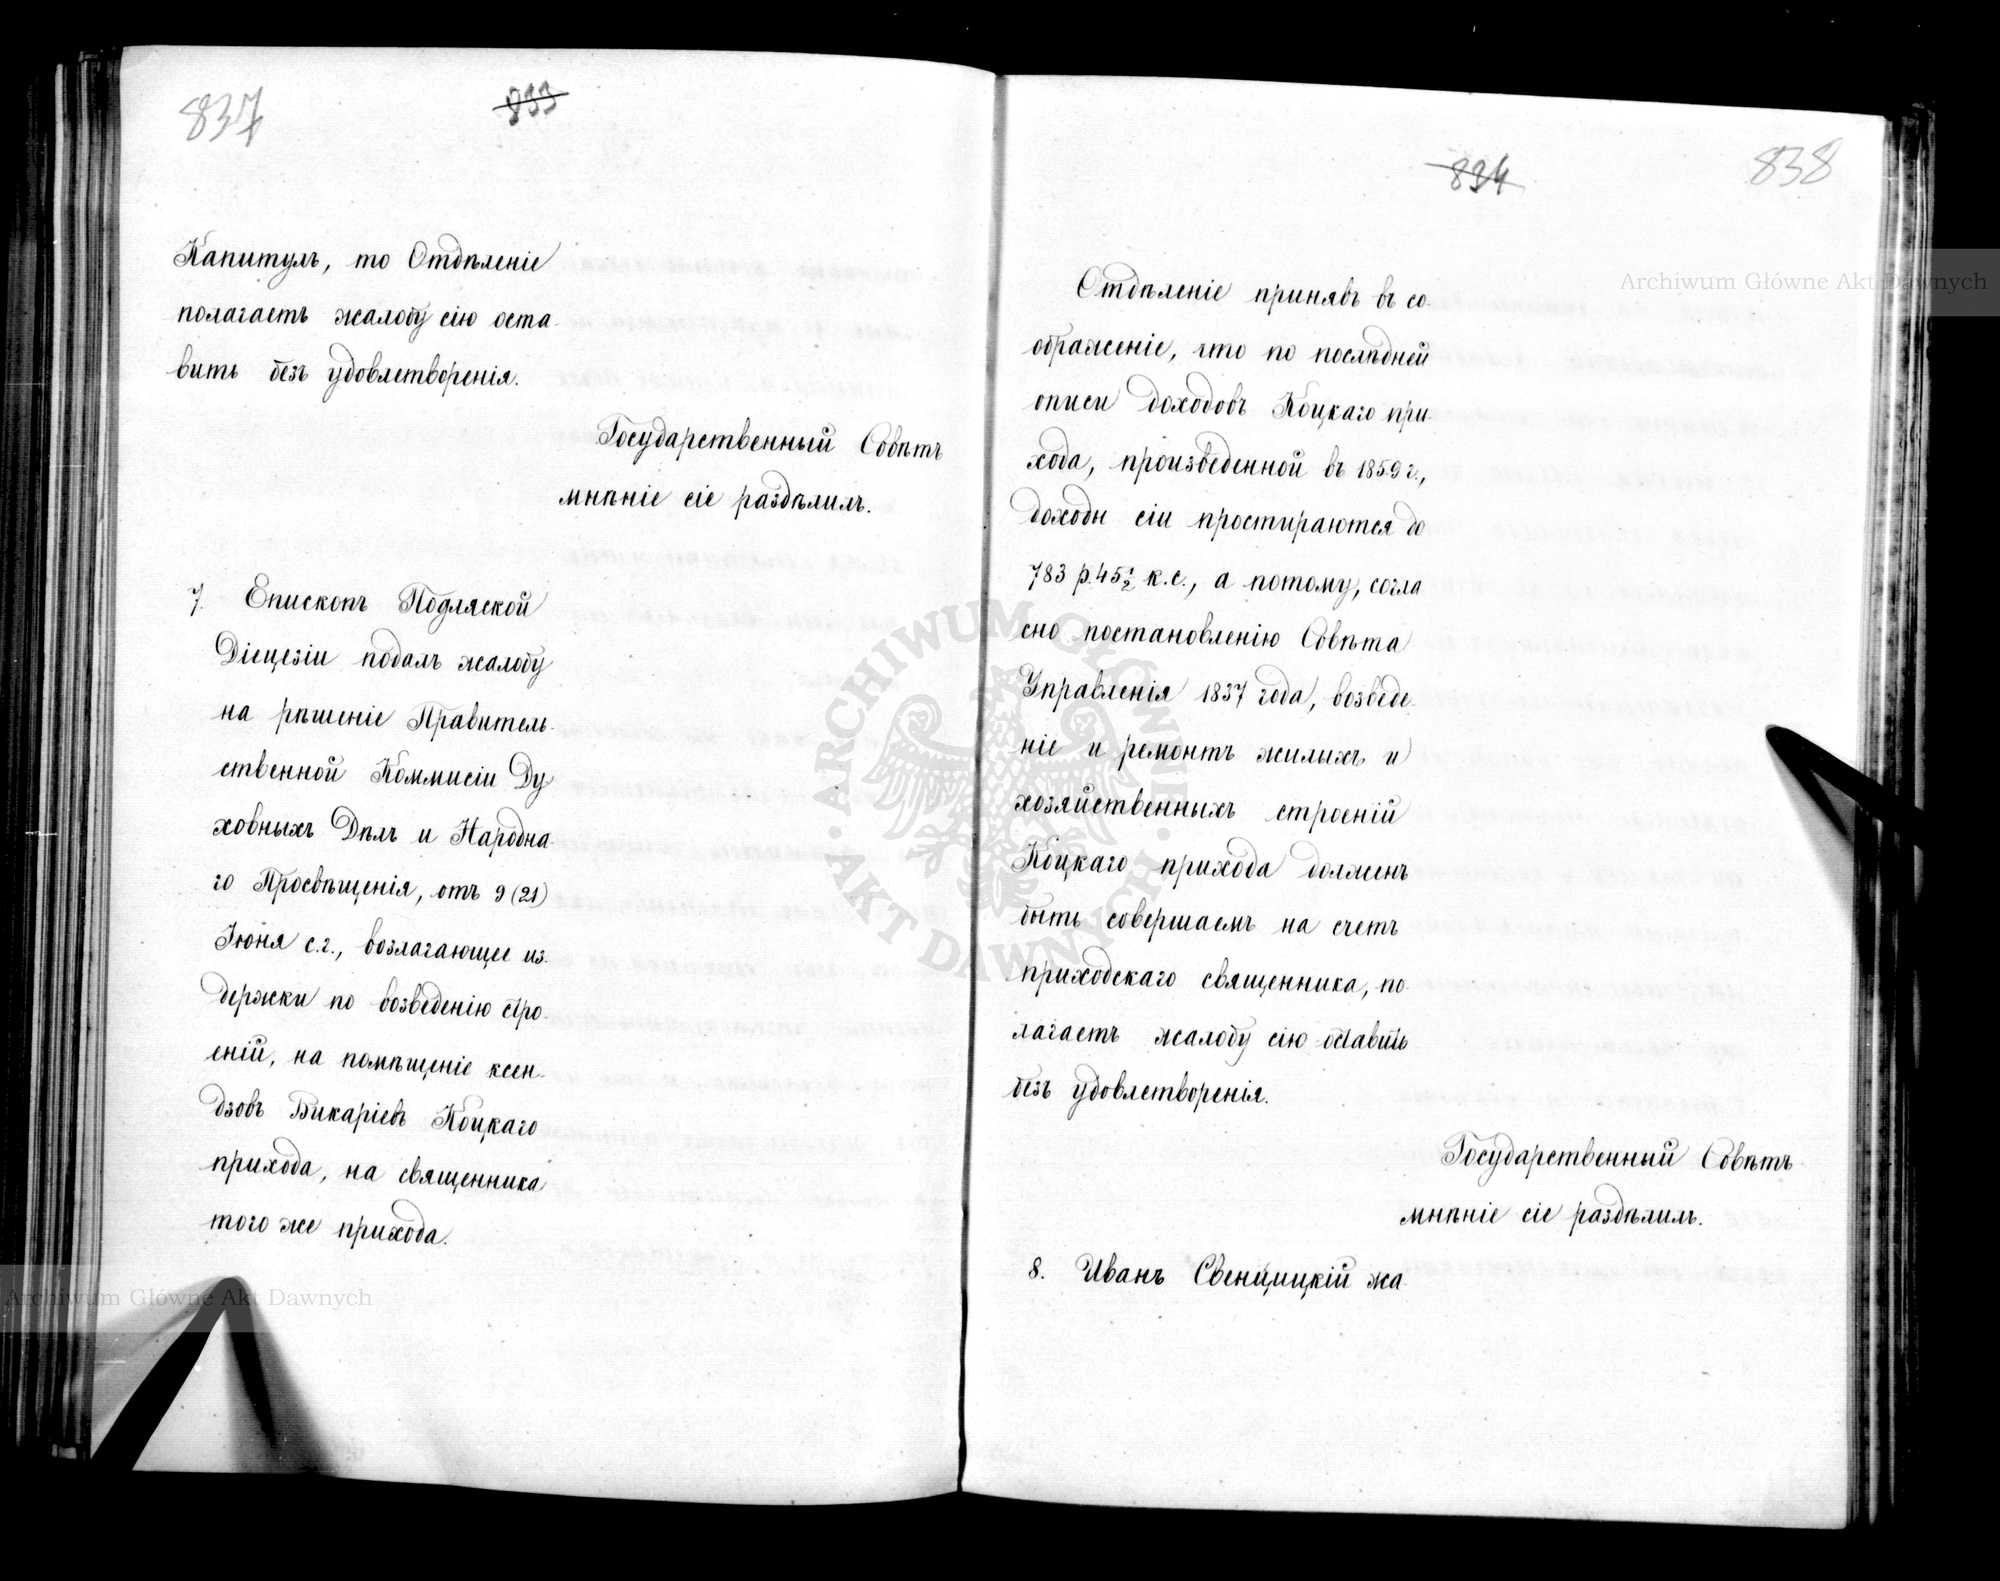 837
833
Капитулъ, то Отдѣленіе
полагаетъ жалобу сію оста-
вить безъ удовлетворенія.
Государственный Совѣтъ
мнѣніе сіе раздѣлилъ.
7. Епископъ Подляской
Діецезіи подалъ жалобу
на рѣшеніе Правитель-
ственной Коммисіи Ду
ховныхъ Дѣлъ и Народна-
го Просвѣщенія, отъ 9 (21)
Іюня с.г., возлагающее из-
держки по возведенію стро-
еній, на помѣщеніе ксен-
дзовъ Викаріевъ Коцкаго
прихода, на священника
того же прихода.
834
838
Отдѣленіе принявъ въ со-
ображеніе, что по послѣдней
описи доходовъ Коцкаго при-
хода, произведенной въ 1859 г.,
доходы сіи простираются до
783 р. 45½ к.с., а потому, согла
сно постановленію Совѣта
Управленія 1837 года, возведе-
ніе и ремонтъ жилыхъ и
хозяйственныхъ строеній
Коцкаго прихода долженъ
быть совершаемъ на счетъ
приходскаго священника, по-
лагаетъ жалобу сію оставить
безъ удовлетворенія.
Государственный Совѣтъ
мнѣніе сіе раздѣлилъ.
8. Иванъ Свенцицкій жа-
Archiwum Główne Akt Dawnych
Archiwum Główne Akt Dawnych
ARCHIWUM GŁÓWNE · AKT DAWNYCH ·